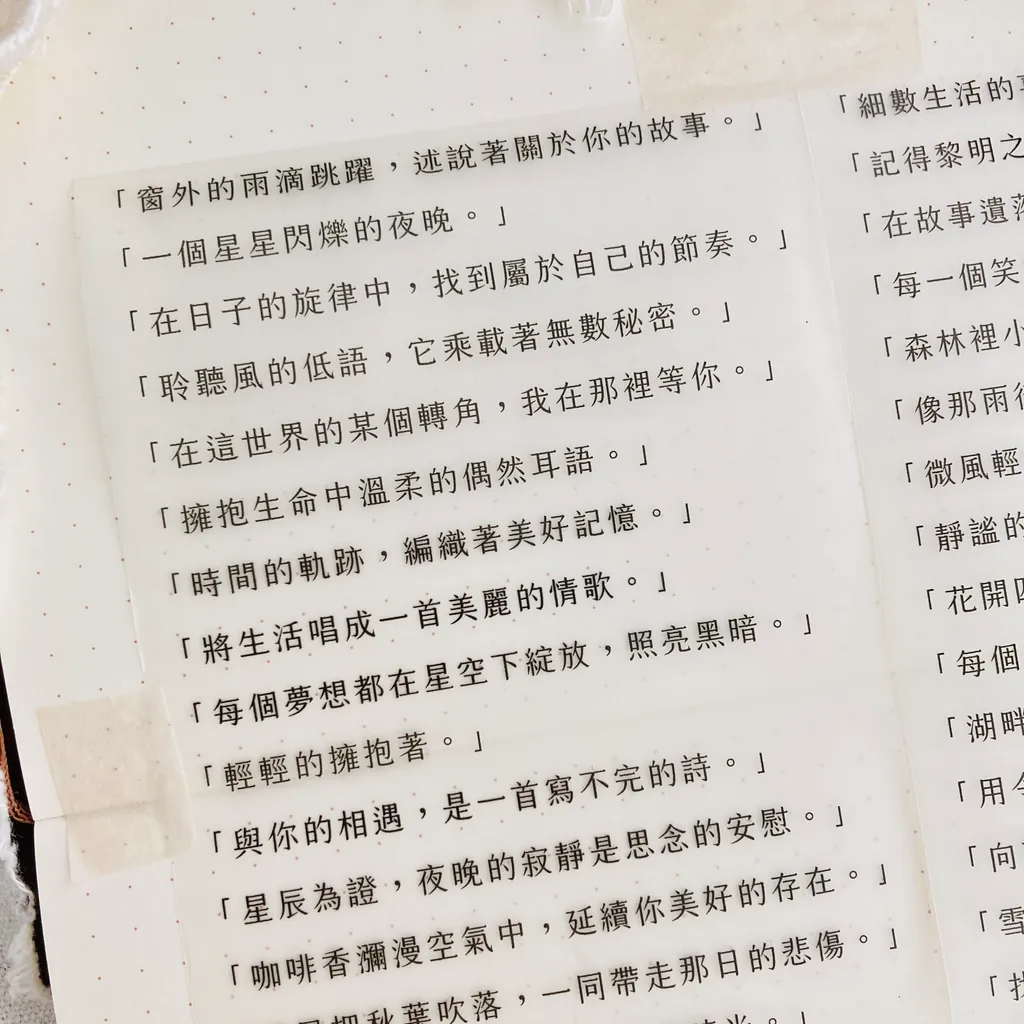 「窗外的雨滴跳躍，述說著關於你的故事。」
「一個星星閃爍的夜晚。」
「在日子的旋律中，找到屬於自己的節奏。」
「聆聽風的低語，它乘載著無數秘密。」
「在這世界的某個轉角，我在那裡等你。」
「擁抱生命中溫柔的偶然耳語。」
「時間的軌跡，編織著美好記憶。」
「將生活唱成一首美麗的情歌。」
「每個夢想都在星空下綻放，照亮黑暗。」
「輕輕的擁抱著。」
「與你的相遇，是一首寫不完的詩。」
「星辰為證，夜晚的寂靜是思念的安慰。」
「咖啡香瀰漫空氣中，延續你美好的存在。」
把秋葉吹落，一同帶走那日的悲傷。」
。」
「細數生活的
「記得黎明之
「在故事遺落
「每一個笑
「森林裡小
「像那雨後
「微風輕
「靜謐的
「花開四
「每個
「湖畔
「用
「向
「雪
「找